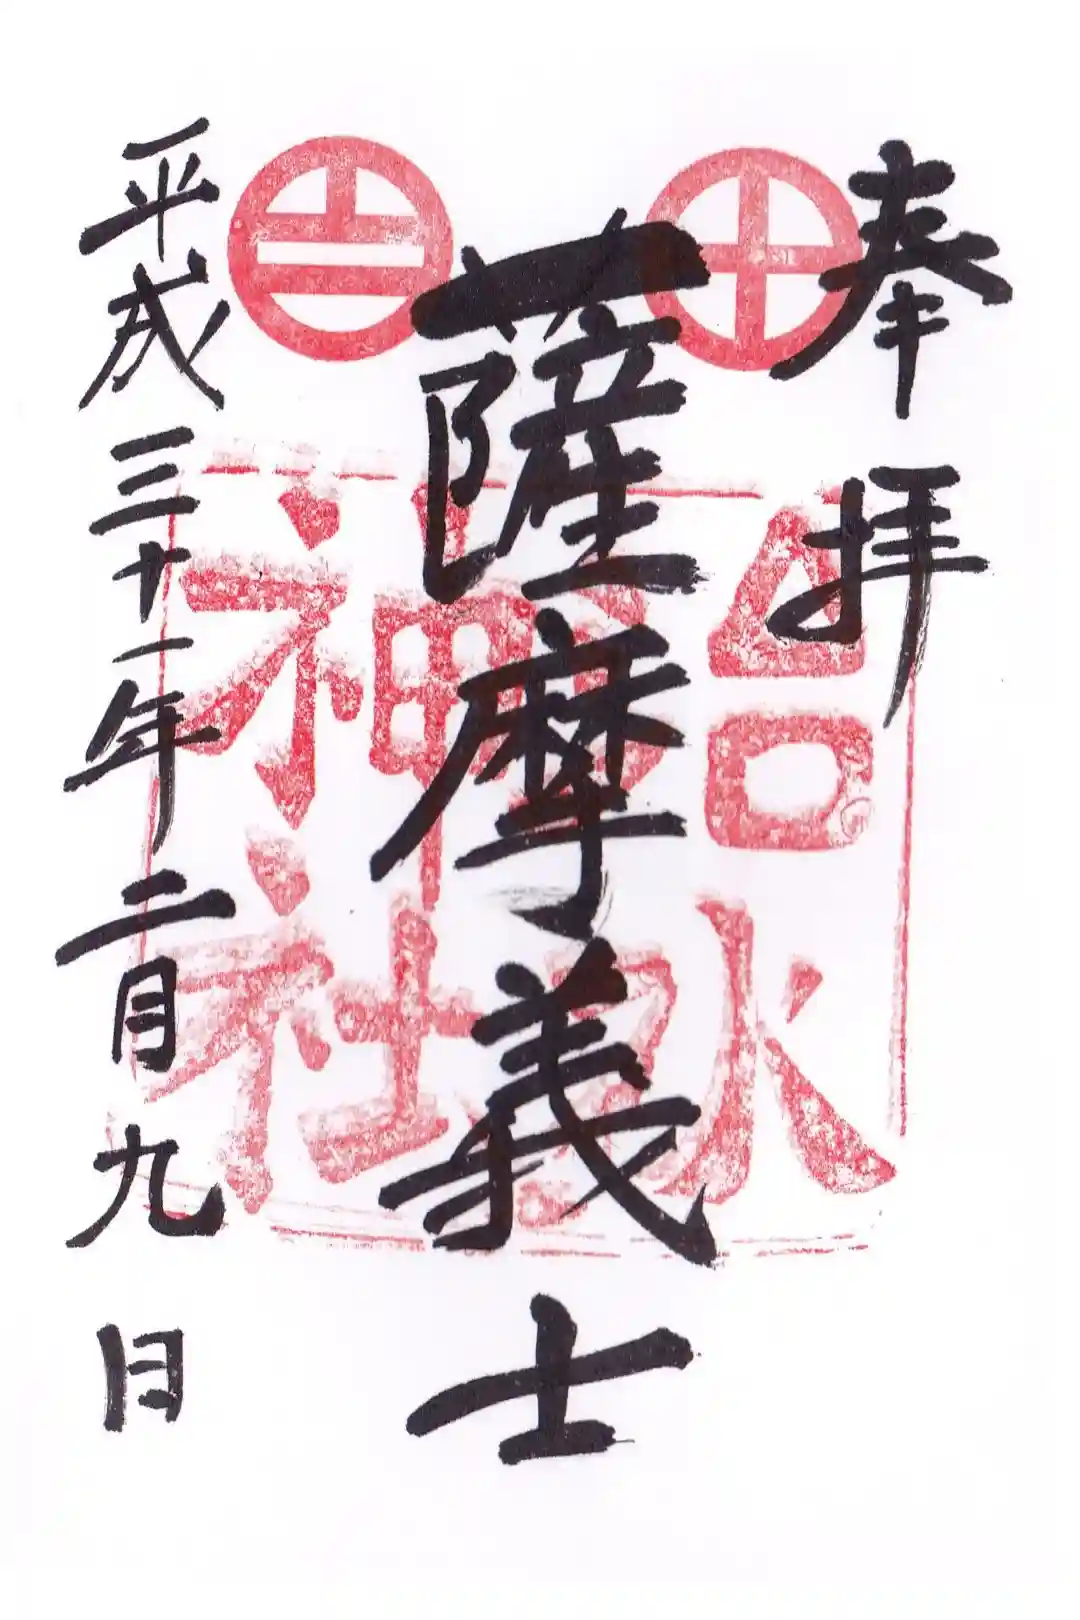 奉拝
薩摩義士
平成三十一年二月九日
治水
神社